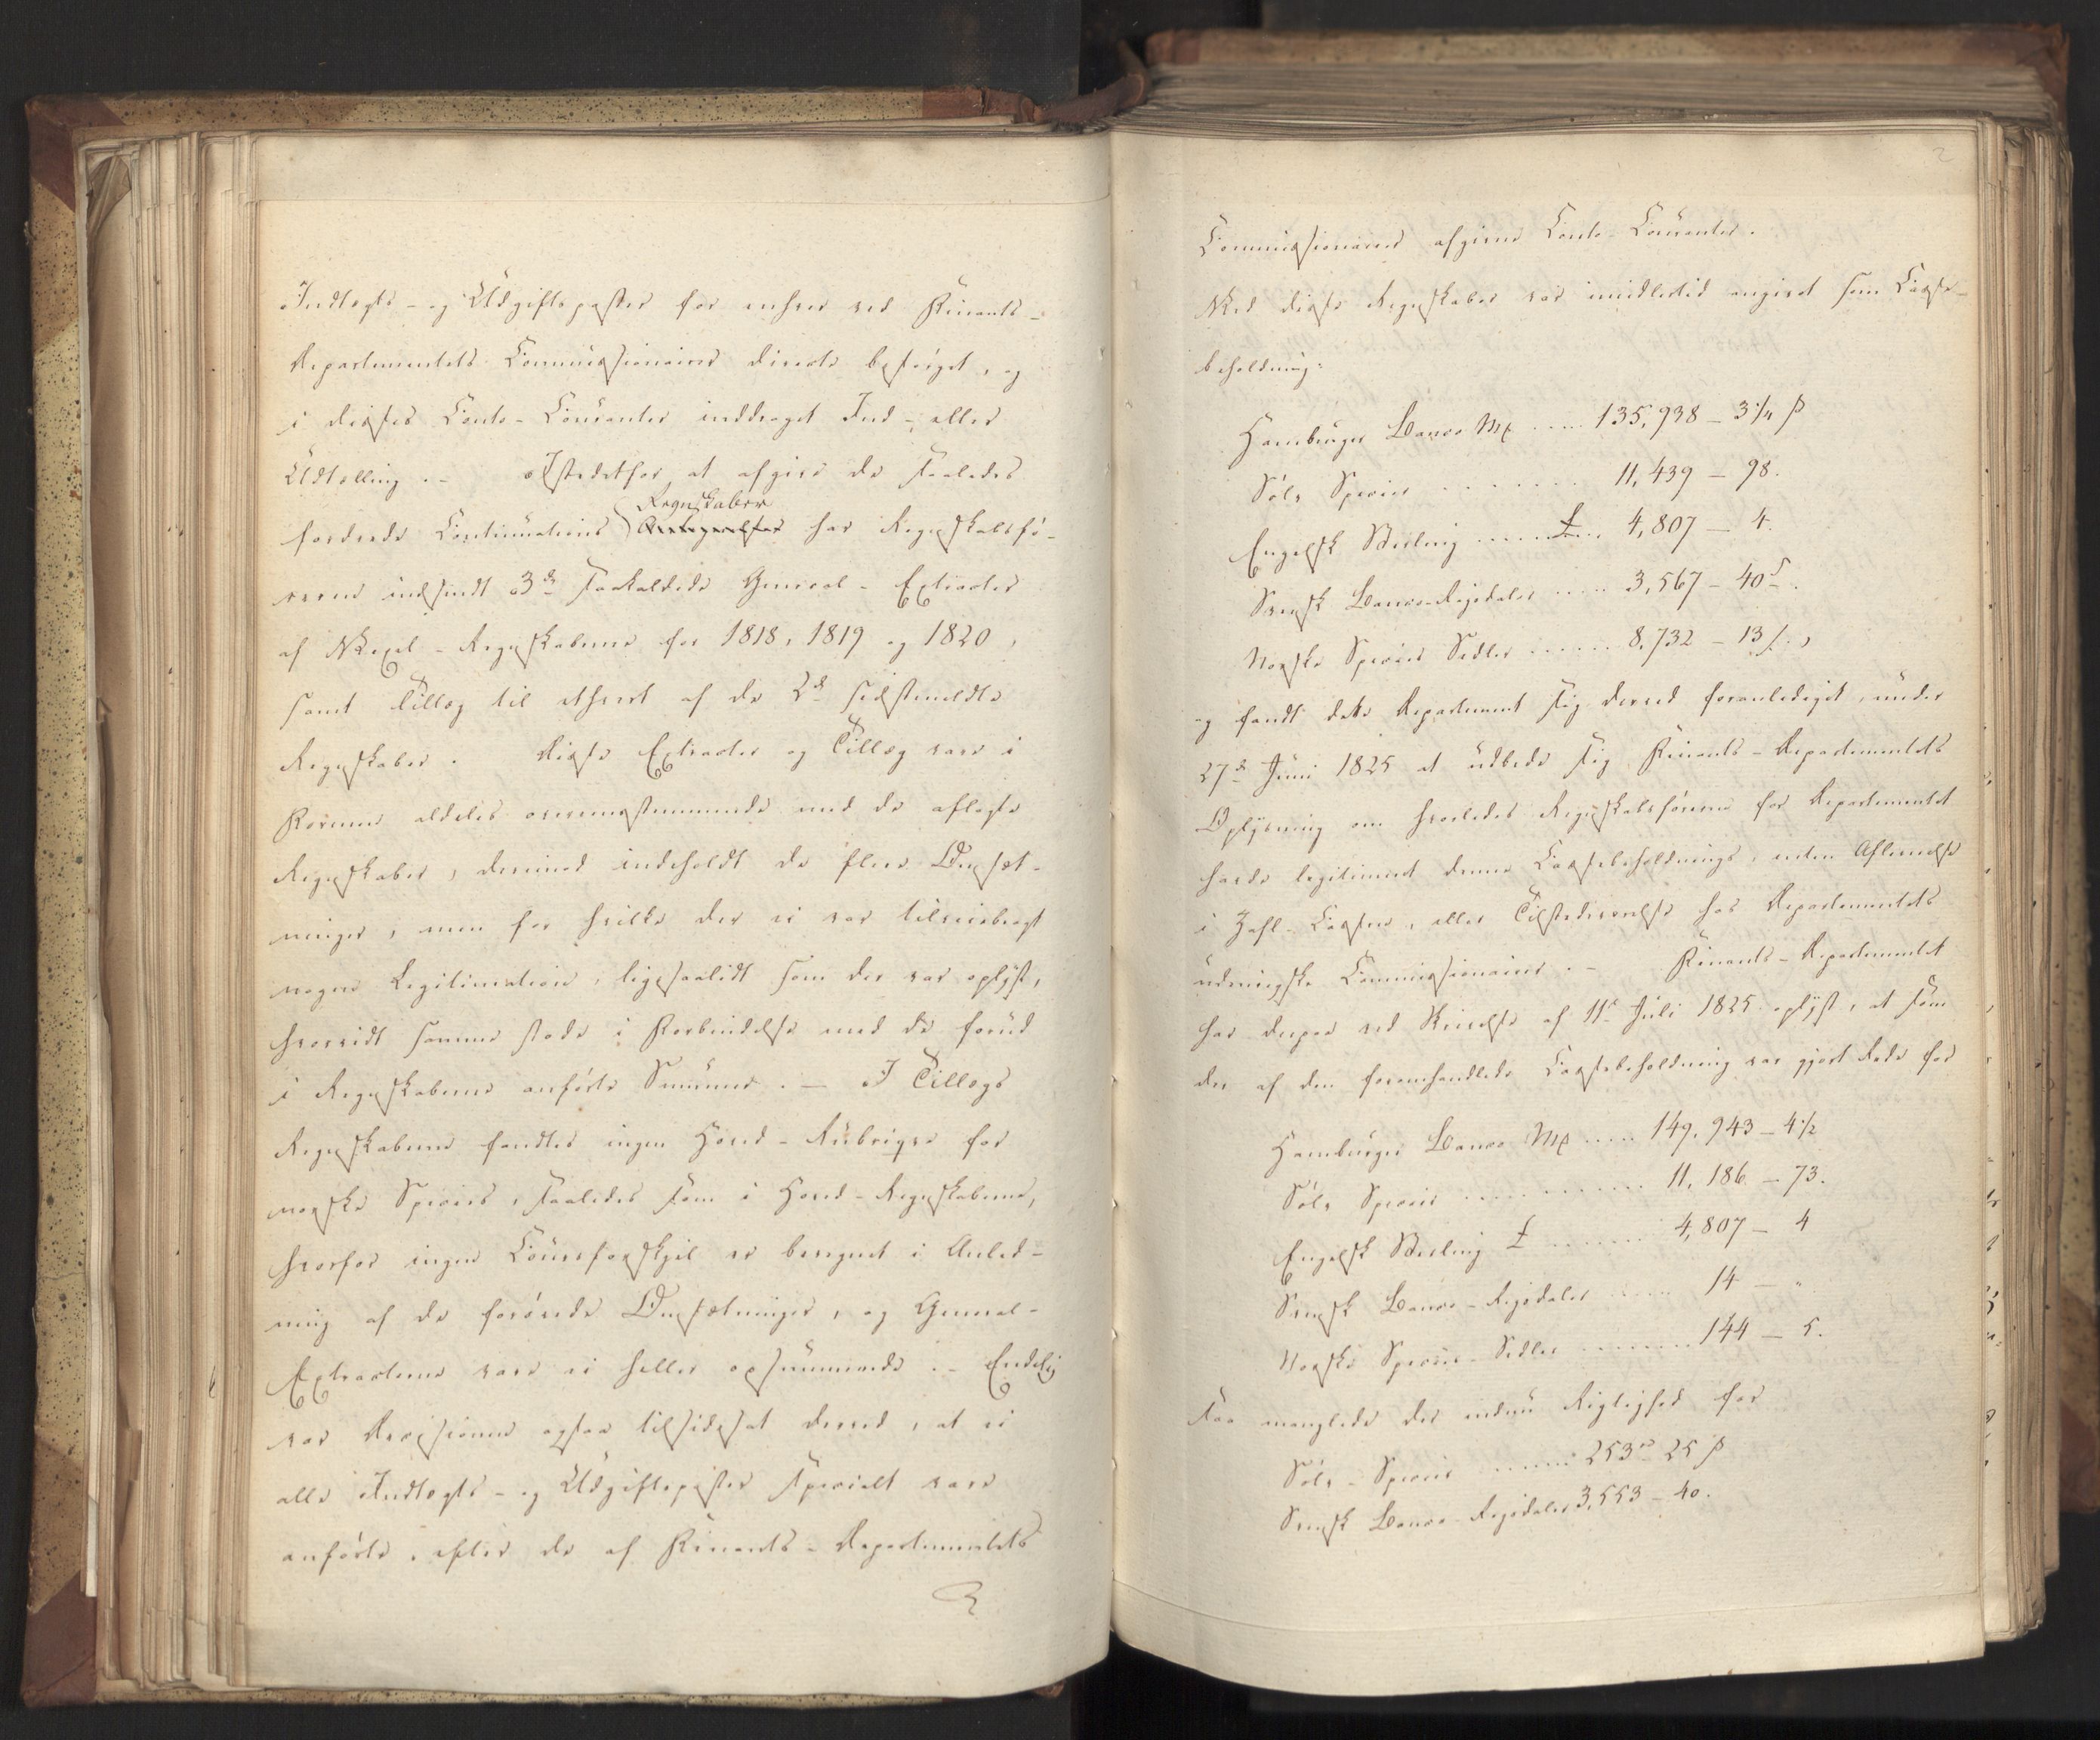 Indtægts- og Udgiftsposter for enhver ved Finants-
Departementets Commissionairer directe besørget, og
i disses Conto-Couranter inddraget Ind- eller
Udtælling. - Istedetfor at afgive de saaledes
Regnskaber
fordrede Continuations har Regnskabsfø-
rerne indsendt 3de saakaldede General-Extracter
af Vexel-Regnskaberne for 1818, 1819 og 1820,
samt Tillæg til ethvert af de 2de sidstmeldte
Regnskaber. Disse Extracter og Tillæg vare i
Formen aldeles overensstemmende med de aflagte
Regnskaber, derimod indeholdt de flere Omsæt-
ninger, men for hvilke der ei var tilveiebragt
nogen Legitimation, ligesaalidt som der var oplyst,
hvorvidt samme stode i Forbindelse med de forud
i Regnskaberne anførte Summer. - I Tillægs
Regnskaberne fandtes ingen Hoved-Rubriqve for
norske Species, saaledes som i Hoved-Regnskaberne,
hvorfor ingen Coursforskjel er beregnet i Anled-
ning af de forøvede Omsætninger, og General-
Extracterne vare ei heller opsummerede. - Endelig
var Decisionen ogsaa tilsidesat derved, at ei
alle Indtægts- og Udgiftsposter specielt vare
anførte, efter de af Finants-Departementets
2
Commissionairer afgivne Conto-Couranter.
Ved disse Regnskaber var imidlertid angivet som Casse-
beholdning:
Hamburger Banco Mk ..... 135,938 - 3 1/4 ß
Sølv Species ........ 11,439 - 98.
Engelsk Sterling ........ £ .. 4,807 - 4.
Svensk Banco-Rigsdaler ..... 3,567 - 40 s.
Norske Species Sedler ...... 8,732 - 13 ß.,
og fandt dette Departement sig derved foranlediget, under
27de Juni 1825 at udbede sig Finants-Departementets
Oplysning om hvorledes Regnskabsførerne for Departementet
havde legitimeret denne Cassebeholdnings, enten Aflevelse
i Zahl-Cassen, eller Tilstedeværelse hos Departementets
udenrigske Commissionairer. - Finants-Departementet
har derpaa ved Skrivelse af 11te Juli 1825 oplyst, at som
der af den foromhandlede Cassebeholdning var gjort Rede for
Hamburger Banco Mk ..... 149,943 - 4 1/2
Sølv Species ............. 11,186 - 73.
Engelsk Sterling £ ....... 4,807 - 4
Svensk Banco-Rigsdaler ..... 14 - "
Norske Species-Sedler ........ 144 - 5.
saa manglede der endnu Rigtighed for
Sølv-Species ....... 253 - 25 ß
Svensk Banco-Rigsdaler 3,553 - 40.